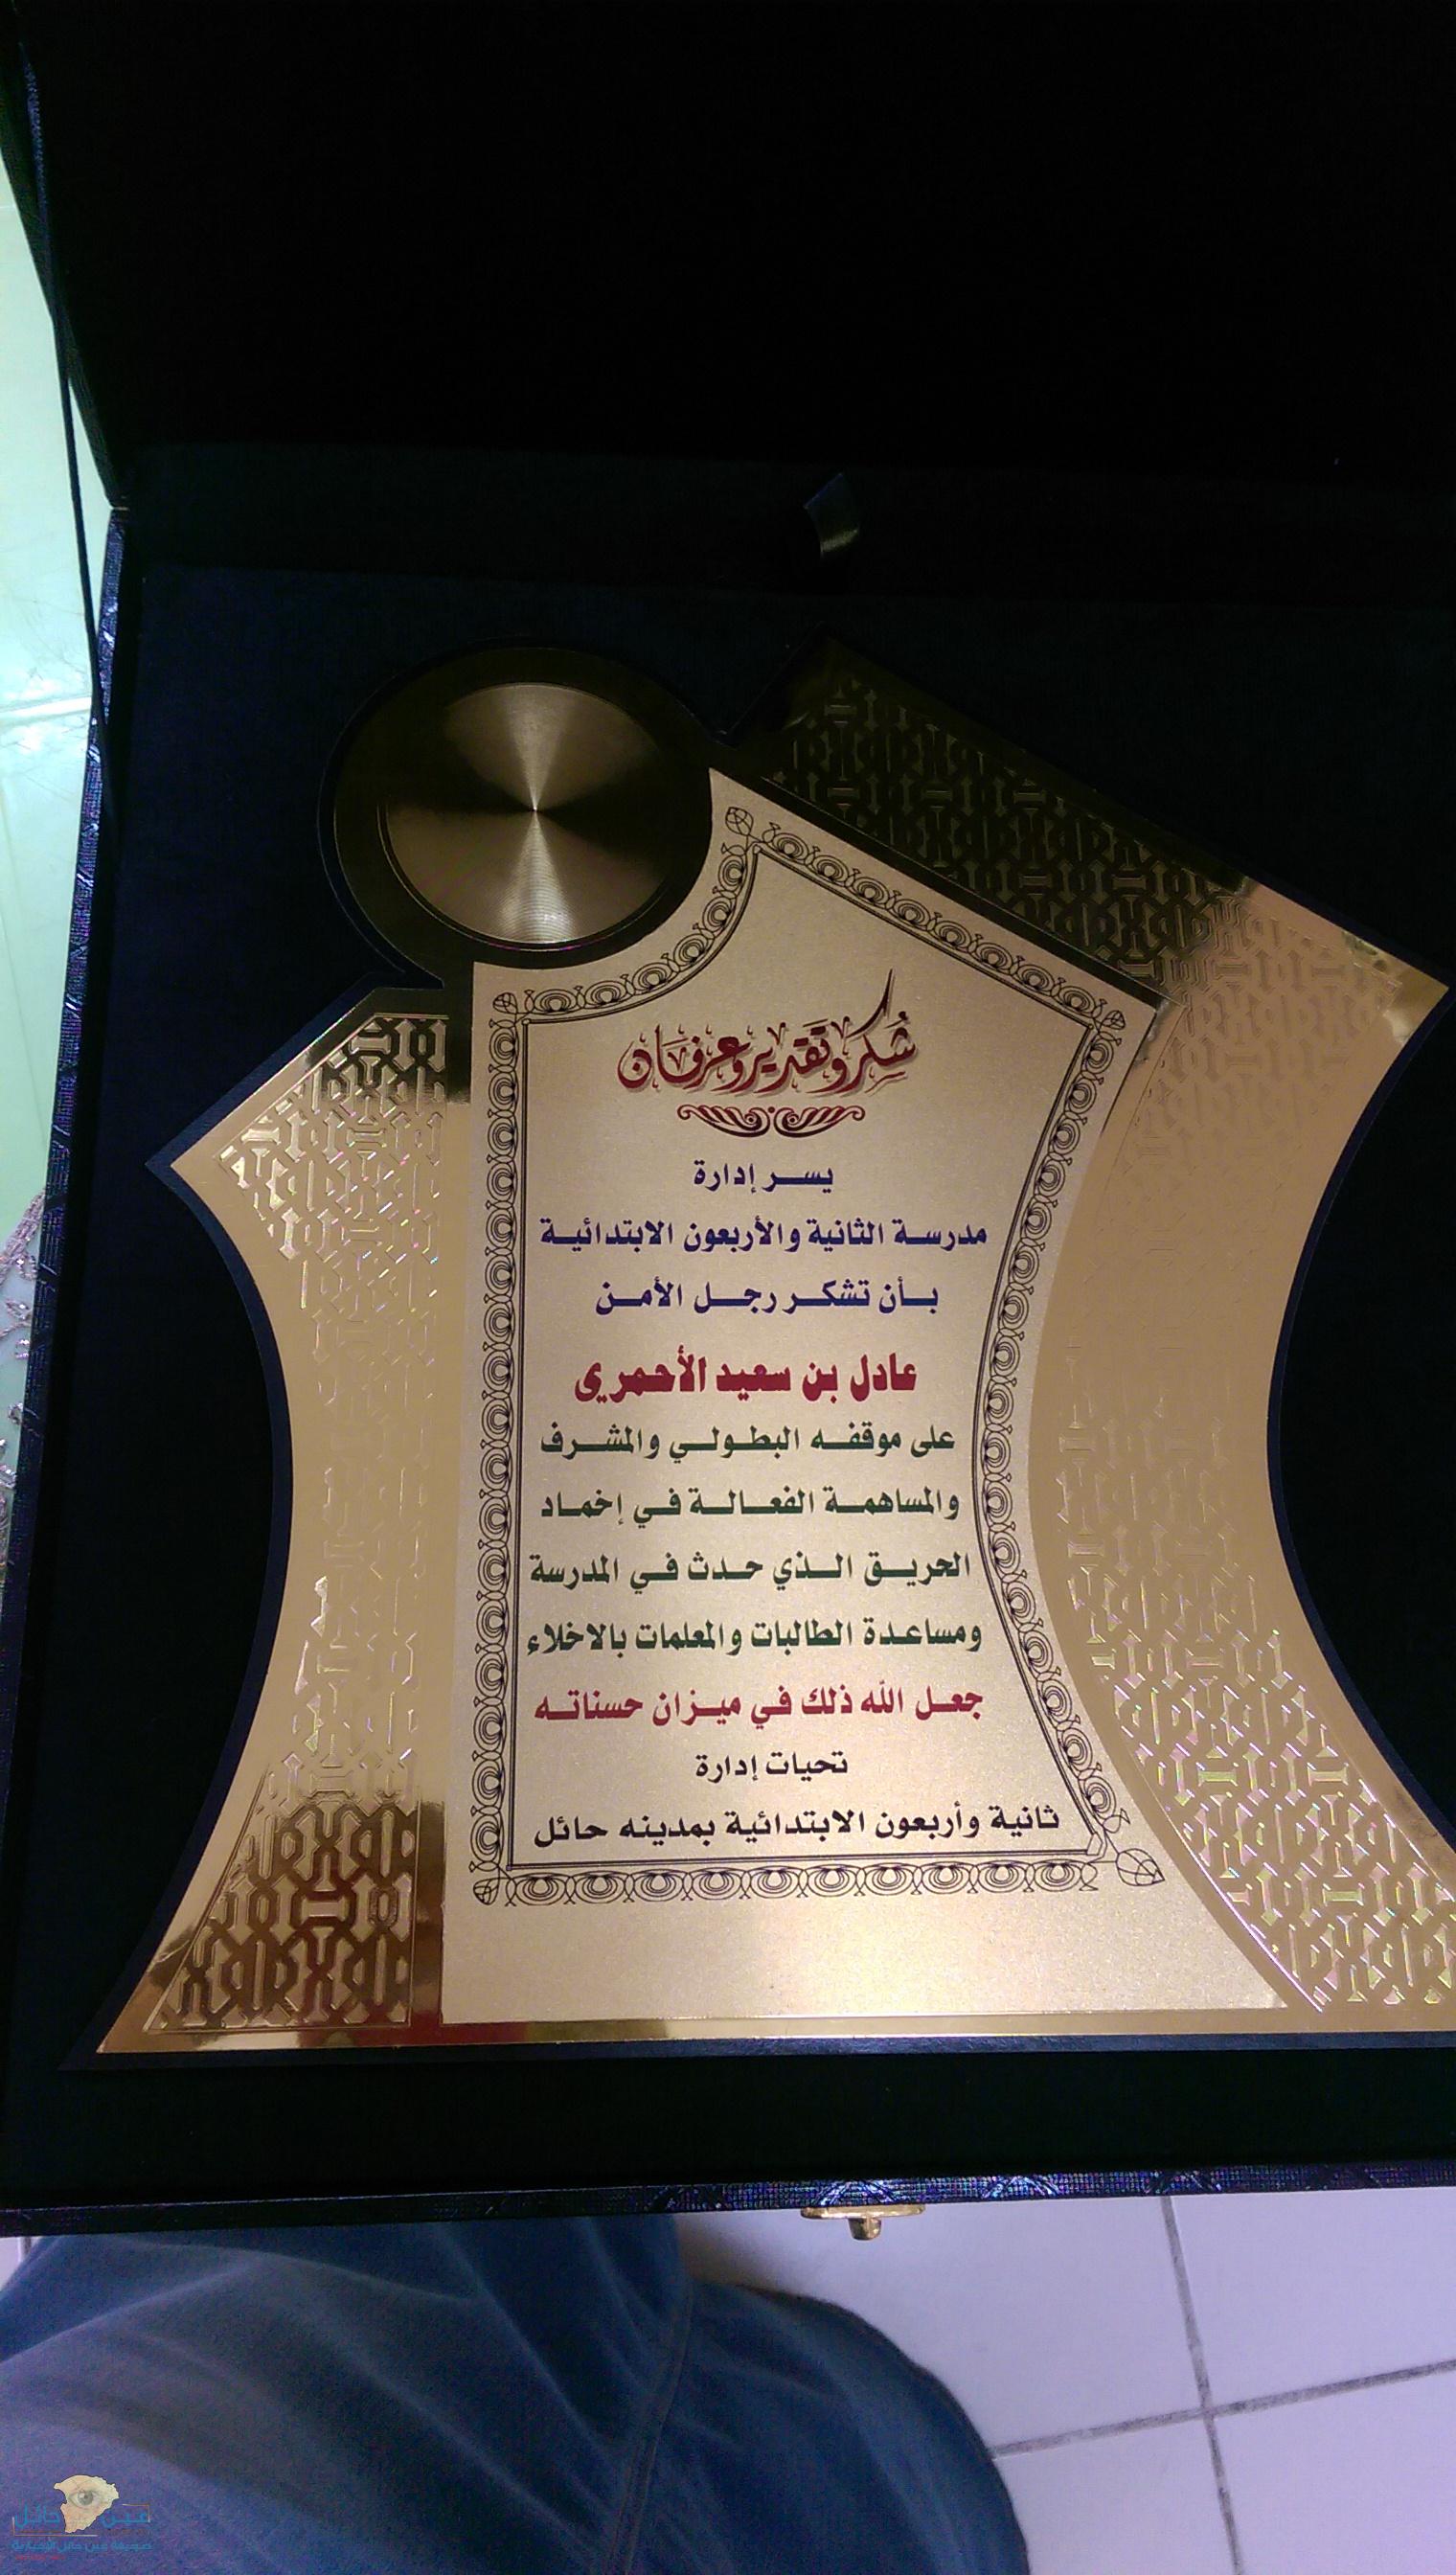 شُكر وتَقدير وعرفان
يسر إدارة
مدرسة الثانية والأربعون الابتدائية
بأن تشكر رجل الأمن
عادل بن سعيد الأحمري
على موقفه البطولي والمشرف
والمساهمة الفعالة في إخماد
الحريق الذي حدث في المدرسة
ومساعدة الطالبات والمعلمات بالاخلاء
جعل الله ذلك في ميزان حسناته
تحيات إدارة
ثانية وأربعون الابتدائية بمدينه حائل
عين حائل
صحيفة عين حائل الإخبارية